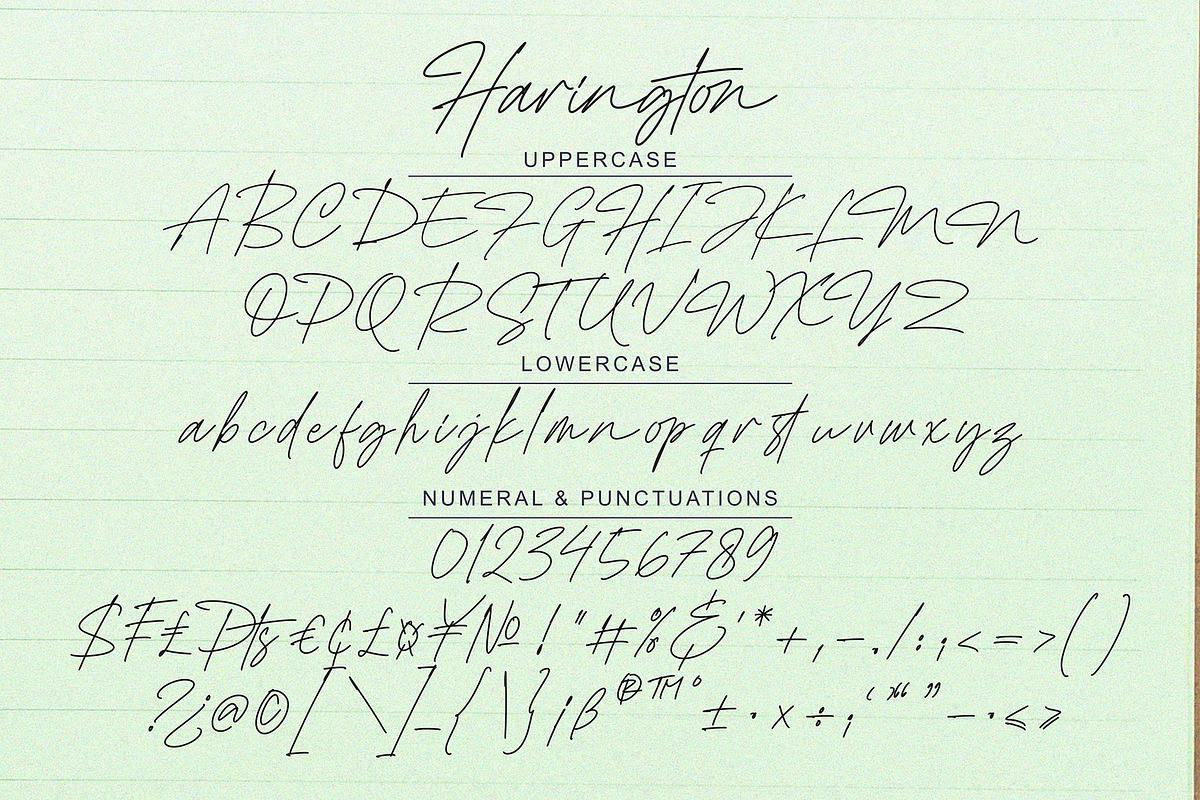 Harington
UPPERCASE
ABCDEFGHIJKLMN
OPQRSTUVWXYZ
LOWERCASE
abcdefghijklmnopqrstuvwxyz
NUMERAL & PUNCTUATIONS
0123456789
$₣₤₧€¢£¤¥№!"#%&'*+,-./:;<=>()
?¿@©[\]_{|}¡β®™°±·×÷;‘’“”—·≤≥